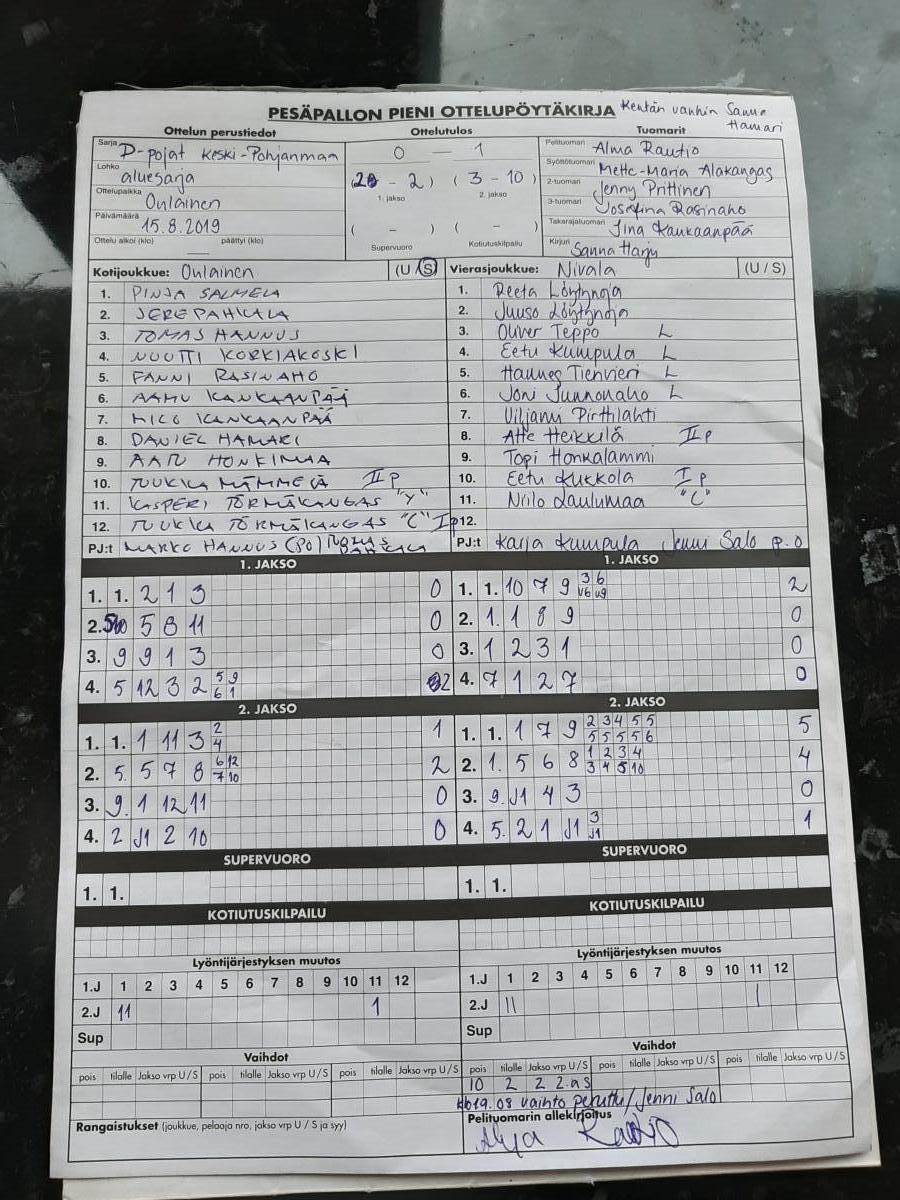 PESÄPALLON PIENI OTTELUPÖYTÄKIRJA Kentän vanhin Sanna Hamari
Ottelun perustiedot
Sarja D-pojat Keski-Pohjanmaa
Lohko aluesarja
Ottelupaikka Oulainen
Päivämäärä 15.8.2019
Ottelu alkoi (klo) päättyi (klo)
Ottelutulos
0 - 1
( - 2) (3 - 10)
1. jakso 2. jakso
( - ) ( - )
Supervuoro Kotiutuskilpailu
Tuomarit
Pelituomari Alma Rautio
Syöttötuomari Mette-Maria Alakangas
2-tuomari Jenny Prittinen
3-tuomari Josefina Rasinaho
Takarajatuomari Iina Kankaanpää
Kirjuri Sanna Harju
Kotijoukkue: Oulainen (U/S)
1. PINJA SALMELA
2. JERE PAHKALA
3. TOMAS HANNUS
4. NUUTTI KORKIAKOSKI
5. FANNI RASINAHO
6. AAMU KANKAANPÄÄ
7. MICO KANKAANPÄÄ
8. DANIEL HAMARI
9. AATU HONKIMAA
10. TUUKKA MÄMMELÄ II P
11. KASPERI TÖRMÄKANGAS "Y"
12. TUUKKA TÖRMÄKANGAS "C" I P
PJ:t MARKO HANNUS (PO)
Vierasjoukkue: Nivala (U/S)
1. Reeta Löytynoja
2. Juuso Löytynoja
3. Oliver Teppo L
4. Eetu Kumpula L
5. Hannes Tienvieri L
6. Joni Junnonaho L
7. Viljami Pirttilahti
8. Atte Heikkilä II P
9. Topi Honkalammi
10. Eetu Kukkola I P
11. Niilo Laulumaa "C"
12.
PJ:t Karja Kumpula Jenni Salo p.o
1. JAKSO
1. 1. 2 1 3 0
2. 5 8 11 0
3. 9 9 1 3 0
4. 5 12 3 2 5 9 2
6 1
2. JAKSO
1. 1. 1 11 3 2 1
4
2. 5. 5 7 8 6 12 2
7 10
3. 9. 1 12 11 0
4. 2 J1 2 10 0
SUPERVUORO
1. 1.
KOTIUTUSKILPAILU
1. JAKSO
1. 1. 10 7 9 3 6 2
V6 V9
2. 1. 1 8 9 0
3. 1 2 3 1 0
4. 7 1 2 7 0
2. JAKSO
1. 1. 1 7 9 2 3 4 5 5 5
5 5 5 5 6
2. 1. 5 6 8 1 2 3 4 4
3 4 5 10
3. 9. J1 4 3 0
4. 5. 2 1 J1 3 1
J1
SUPERVUORO
1. 1.
KOTIUTUSKILPAILU
Lyöntijärjestyksen muutos
1.J 1 2 3 4 5 6 7 8 9 10 11 12
2.J 11 1
Sup
Vaihdot
pois tilalle Jakso vrp U/S pois tilalle Jakso vrp U/S pois tilalle Jakso vrp U/S
Rangaistukset (joukkue, pelaaja nro, jakso vrp U / S ja syy)
Lyöntijärjestyksen muutos
1.J 1 2 3 4 5 6 7 8 9 10 11 12
2.J 11 1
Sup
Vaihdot
pois tilalle Jakso vrp U/S pois tilalle Jakso vrp U/S pois tilalle Jakso vrp U/S
10 2 2 2.as
klo 19.08 vaihto peruttu/Jenni Salo
Pelituomarin allekirjoitus